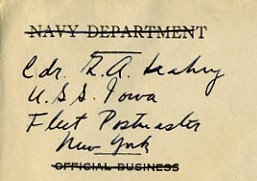 NAVY DEPARTMENT
Cdr. E. A. Leahy
U.S.S. Iowa
Fleet Postmaster
New York
OFFICIAL BUSINESS